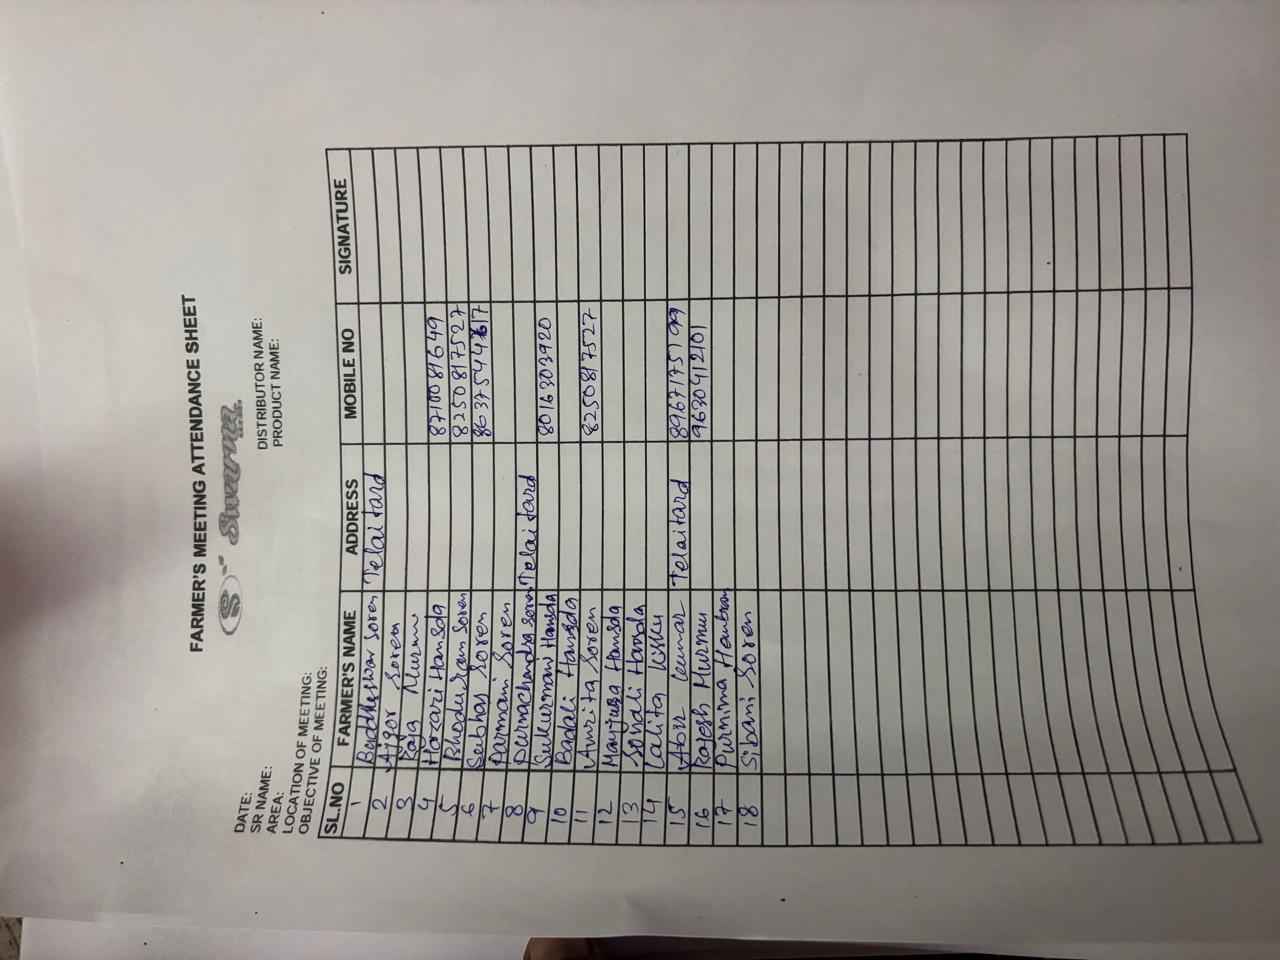 FARMER'S MEETING ATTENDANCE SHEET
Swarna
DISTRIBUTOR NAME:
PRODUCT NAME:
DATE:
SR NAME:
AREA:
LOCATION OF MEETING:
OBJECTIVE OF MEETING:
SL.NO FARMER'S NAME ADDRESS MOBILE NO SIGNATURE
1 Baddheswar Soren Telaitard
2 Ajgor Soren
3 Raja Murmu
4 Hazari Hansda 8710081649
5 Bhaduram Soren 8250817527
6 Subhas Soren
7 Parmani Soren
8 Purnachandra Soren Telaitard
9 Sukurmani Hansda 8016303920
10 Badali Hansda
11 Amrita Soren 8250817527
12 Manjusa Hansda
13 Sonali Hansda
14 Lalita
15 Abir Kumar Telaitard 8967175199
16 Rajesh Murmu 9630412101
17 Purnima Hembram
18 Sibani Soren